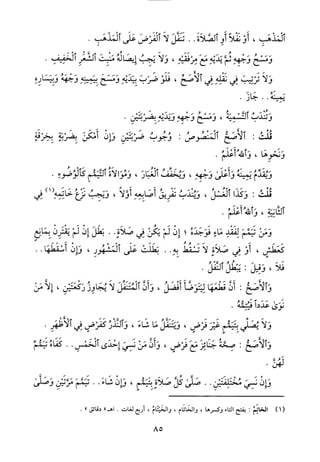 ٱلْمَذْهَبِ ، أَوْ نَفْلاً أَوِ ٱلصَّلاَةَ.. تَنَفَّلَ لاَ ٱلْفَرْضَ عَلَى ٱلْمَذْهَبِ .
وَمَسْحُ وَجْهِهِ ثُمَّ يَدَيْهِ مَعَ مِرْفَقَيْهِ ، وَلاَ يَجِبُ إِيصَالُهُ مَنْبِتَ ٱلشَّعْرِ ٱلْخَفِيفِ .
وَلاَ تَرْتِيبَ فِي نَقْلِهِ فِي ٱلأَصَحِّ ، فَلَوْ ضَرَبَ بِيَدَيْهِ وَمَسَحَ بِيَمِينِهِ وَجْهَهُ وَبِيَسَارِهِ
يَمِينَهُ.. جَازَ .
وَتُنْدَبُ ٱلتَّسْمِيَةُ ، وَمَسْحُ وَجْهِهِ وَيَدَيْهِ بِضَرْبَتَيْنِ .
قُلْتُ : ٱلأَصَحُّ ٱلْمَنْصُوصُ : وُجُوبُ ضَرْبَتَيْنِ وَإِنْ أَمْكَنَ بِضَرْبَةٍ بِخِرْقَةٍ
وَنَحْوِهَا ، وَٱللهُ أَعْلَمُ .
وَيُقَدِّمُ يَمِينَهُ وَأَعْلَىٰ وَجْهِهِ ، وَيُخَفِّفُ ٱلْغُبَارَ ، وَمُوَالاَةُ ٱلتَّيَمُّمِ كَٱلْوُضُوءِ .
قُلْتُ : وَكَذَا ٱلْغُسْلُ ، وَيُنْدَبُ تَفْرِيقُ أَصَابِعِهِ أَوَّلاً ، وَيَجِبُ نَزْعُ خَاتِمِهِ(١) فِي
ٱلثَّانِيَةِ ، وَٱللهُ أَعْلَمُ .
وَمَنْ تَيَمَّمَ لِفَقْدِ مَاءٍ فَوَجَدَهُ ؛ إِنْ لَمْ يَكُنْ فِي صَلاَةٍ.. بَطَلَ إِنْ لَمْ يَقْتَرِنْ بِمَانِعٍ
كَعَطَشٍ ، أَوْ فِي صَلاَةٍ لاَ تَسْقُطُ بِهِ.. بَطَلَتْ عَلَى ٱلْمَشْهُورِ ، وَإِنْ أَسْقَطَهَا..
فَلاَ ، وَقِيلَ : يَبْطُلُ ٱلنَّفْلُ .
وَٱلأَصَحُّ : أَنَّ قَطْعَهَا لِيَتَوَضَّأَ أَفْضَلُ ، وَأَنَّ ٱلْمُتَنَفِّلَ لاَ يُجَاوِزُ رَكْعَتَيْنِ ، إِلاَّ مَنْ
نَوَىٰ عَدَداً فَيُتِمُّهُ .
وَلاَ يُصَلِّي بِتَيَمُّمٍ غَيْرَ فَرْضٍ ، وَيَتَنَفَّلُ مَا شَاءَ ، وَٱلنَّذْرُ كَفَرْضٍ فِي ٱلأَظْهَرِ .
وَٱلأَصَحُّ : صِحَّةُ جَنَائِزَ مَعَ فَرْضٍ ، وَأَنَّ مَنْ نَسِيَ إِحْدَى ٱلْخَمْسِ.. كَفَاهُ تَيَمُّمٌ
لَهُنَّ .
وَإِنْ نَسِيَ مُخْتَلِفَتَيْنِ.. صَلَّىٰ كُلَّ صَلاَةٍ بِتَيَمُّمٍ ، وَإِنْ شَاءَ.. تَيَمَّمَ مَرَّتَيْنِ وَصَلَّىٰ
(١) الخاتم : بفتح التاء وكسرها ، والخاتام ، والخيتام ، أربع لغات . اهـ « دقائق » .
٨٥